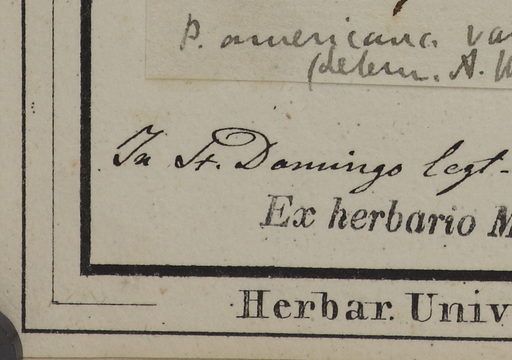 P. americana. va
(determ. A.
In St. Domingo legt-
Ex herbario M
Herbar. Univ